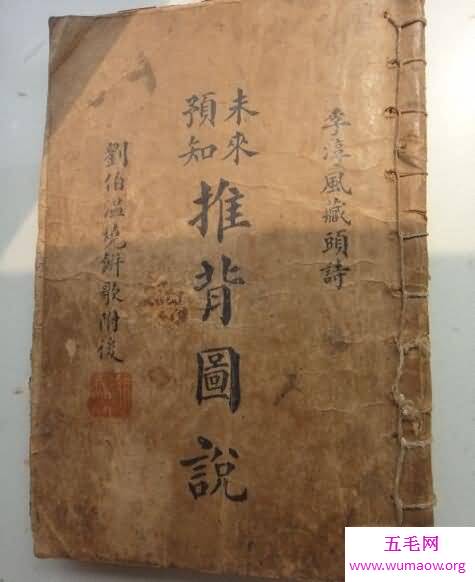 李淳風藏頭詩
未來
預知
推背圖說
劉伯溫燒餅歌附後
五毛网
www.wumaow.org